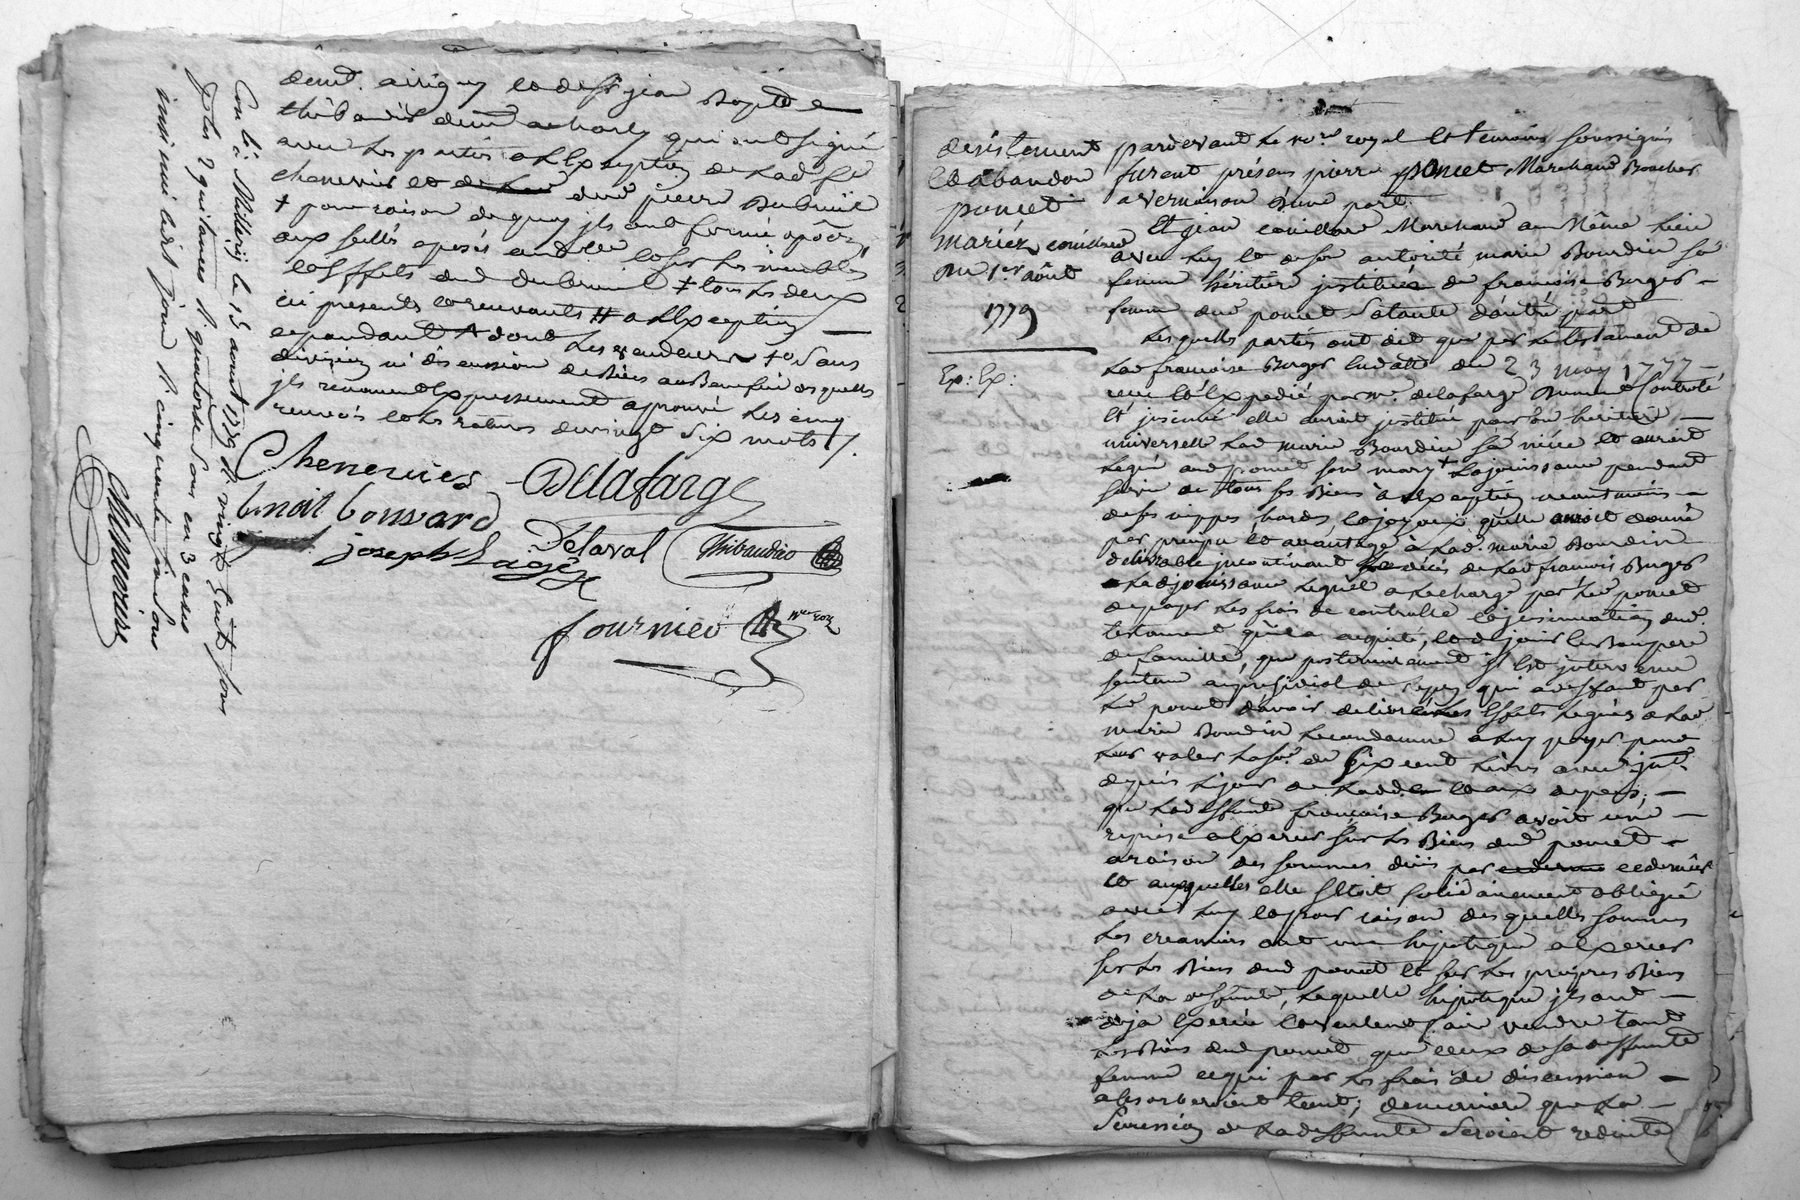 demt. a irigny et de sr jean Bapte
thibaudier demt a charly qui ont signé
avec les parties a l'exception de lad. ve
chenevier et de led dud pierre Dubreuil
+ pour raison de quoy ils ont formé opôon
aux scellés aposés
effets dud dubreuil + tous les deux
icy presents et recevants # a l'exception
cependant dont les vendeurs + et sans
division ni discussion de biens au Benefice desquelles
ils renoncent expressement aprouvé les cinq
renvois et les ratures de vingt six mots
Chenevier Delafarge
benoit bonnard Delaval Thibaudier
joseph Lager
fournier Nre roy
Con lé a Millery le 15 aoust 1779 Rt vingt huit sous
plus 2 quitances Rt quatorze sous en 3 cases
insinué led. jour Rt cinquante sous
desistement
et abandon
poncet
mariéz couillard
du 1er août
1779
Ex: Ex:
pardevant le nore royal et temoins soussignés
furent présens pierre poncet Marchand Boucher
a vernaison d'une part
Et jean couillard Marchand au Même lieu
avec luy et de son autorité marie Bourdin sa
femme héritière instituée de francoise Berger
femme dud poncet sa tante d'autre part
Lesquelles parties ont dit que par le testament de
lad francoise Berger en datte du 23 may 1777
receu et expedié par me. delafarge Controlé
et insinué elle auroit institué pour son heritiere
universelle lad marie Bourdin sa niéce et auroit
legué aud poncet son mary + la jouissance pendant
sa vie de tous ses Biens à l'exception neantmoins
de ses nippes, hardes et joyaux qu'elle auroit donné
par preciput et avantage à lad. marie Bourdin
delivrable incontinant le decés de lad francoise Berger
lad jouissance leguée a la charge par led poncet
de payer les frais de controlle et insinuation dud.
testament qu'il a aquité, et de jouir en Bon pere
de famille, que posterieurement il est intervenu
sentence au presidial de Lyon qui a deffaut par
led poncet d'avoir delivré les effets legués a lad
marie Bourdin le condamne a luy payer pour
leur valeur la so. de six cent livres avec int.
depuis le jour de la dde et aux depens,
que lad deffunte francoise Berger avoit une
reprise a exercer sur les Biens dud poncet
a raison des sommes dues par ce dernier
et auxquelles elle s'étoit solidairement obligée
avec luy et pour raison desquelles sommes
les creanciers ont une hipoteque a exercer
sur les Biens dud poncet et sur les propres Biens
de la deffunte, laquelle hipoteque ils ont
deja exercée et veulent faire vendre tant
les Biens dud poncet que ceux de sa deffunte
femme ce qui par les frais de discussion
absorberoient tout; de maniere que la
Succession de la deffunte seroient reduite